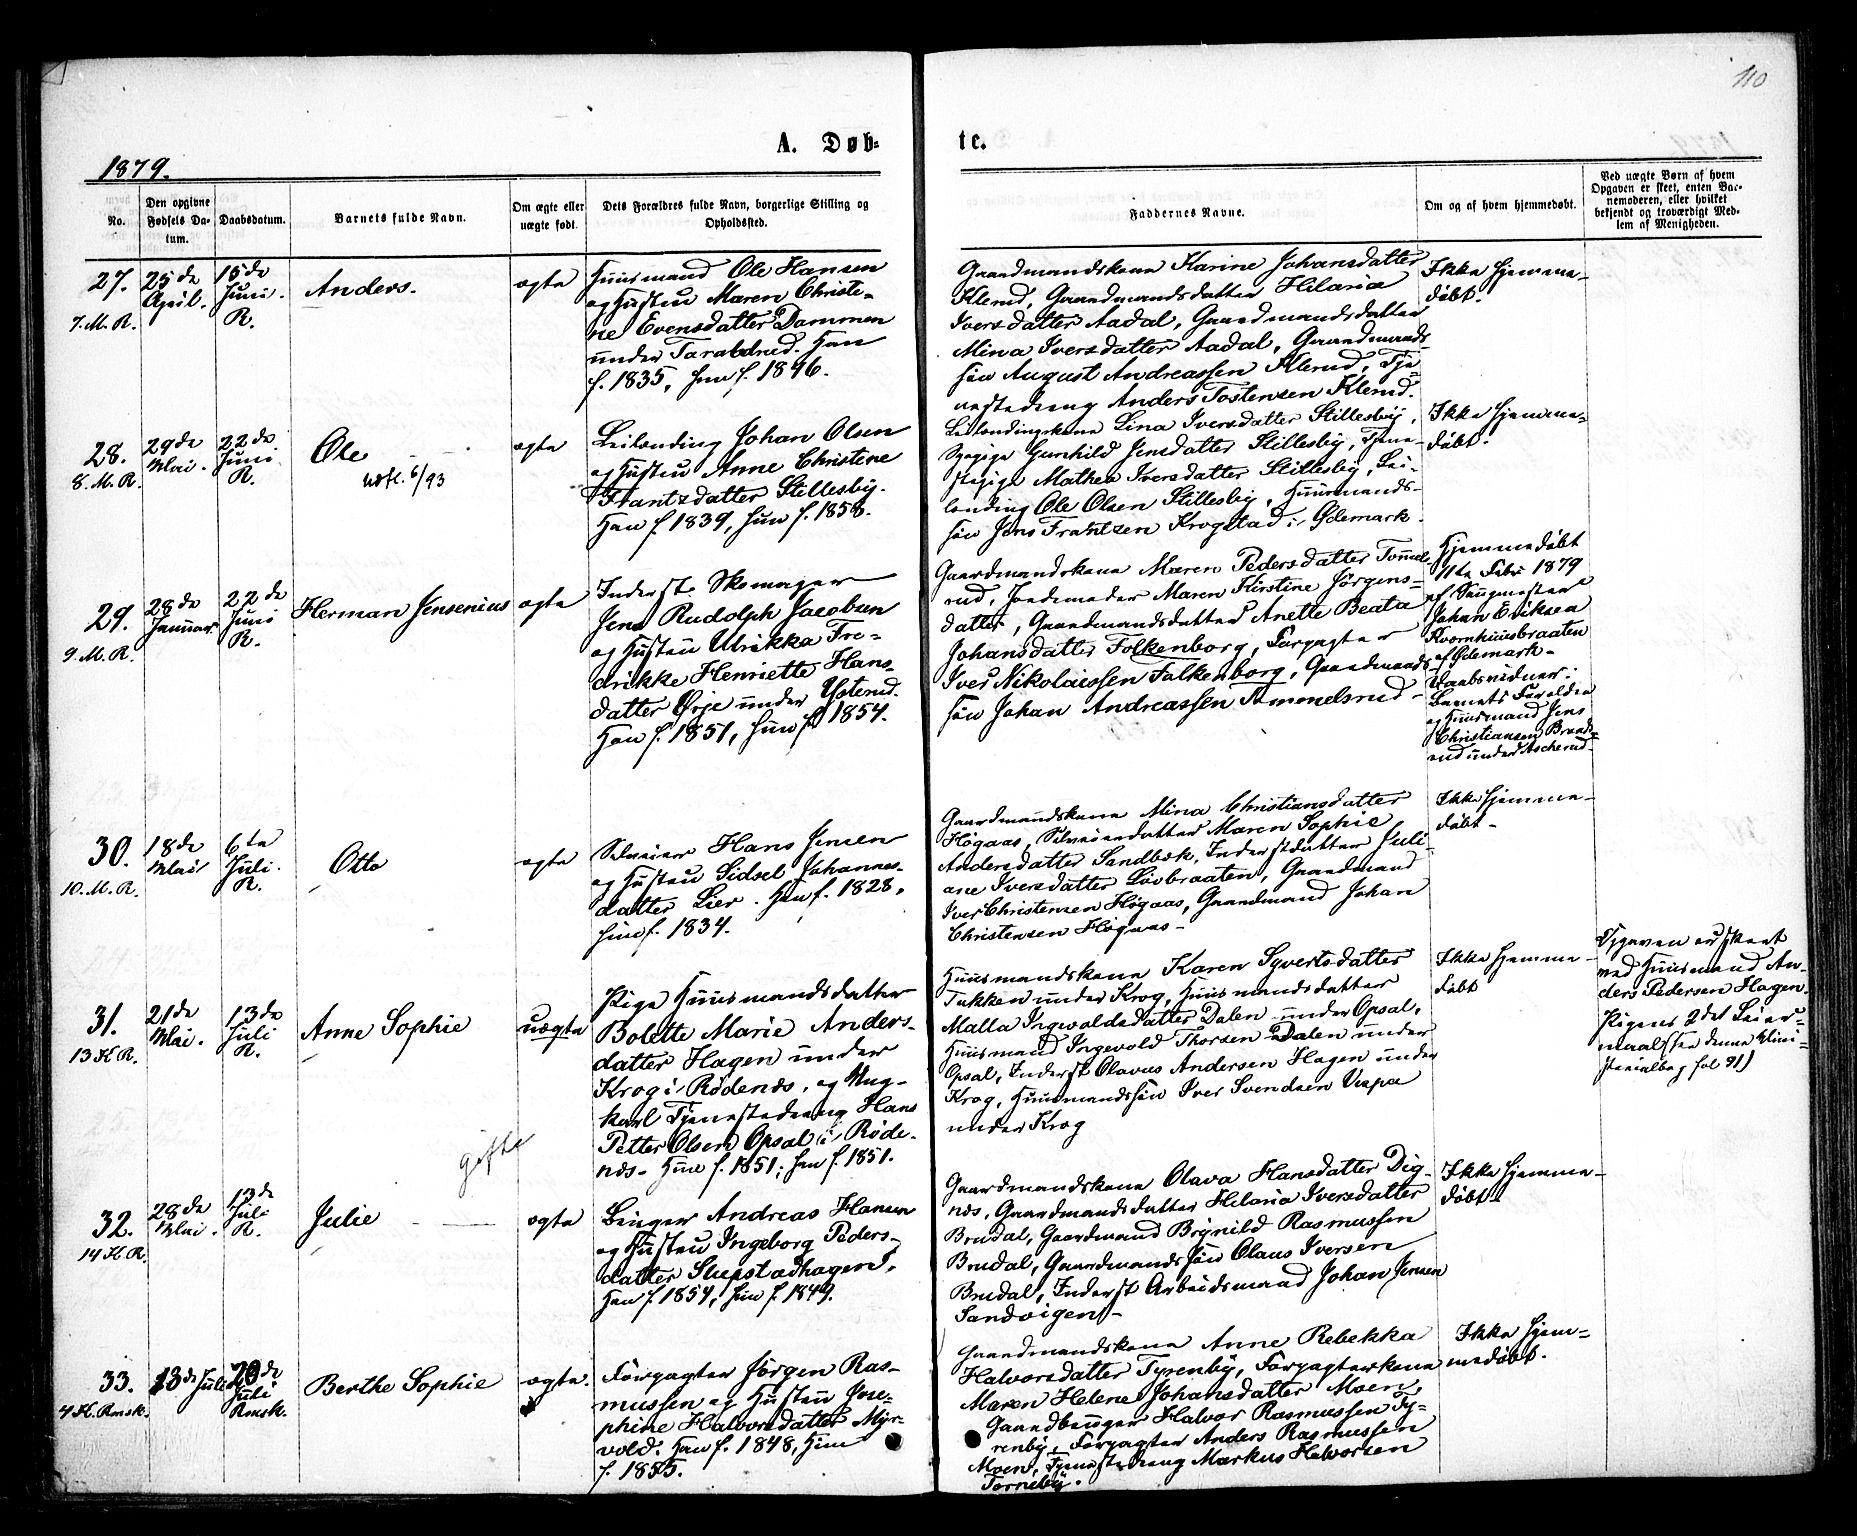 110
A. Døb-
te.
1879.
No.
Den opgivne
Fødsels Da-
tum.
Daabsdatum.
Barnets fulde Navn.
Om ægte eller
uægte født.
Dets Forældres fulde Navn, borgerlige Stilling og
Opholdssted.
Faddernes Navne.
Om og af hvem hjemmedøbt.
Ved uægte Børn af hvem
Opgaven er skeet, enten Bar-
nemoderen, eller hvilket
bekjendt og troværdigt Med-
lem af Menigheden.
27.
7. M. R.
25de
April.
15de
Juni.
R.
Anders.
ægte
Huusmand Ole Hansen
og Hustru Maren Christi-
ne Evensdatter Dammen
under Taraldrud. Han
f. 1835, hun f. 1846.
Gaardmandskone Karine Johansdatter
Klerud, Gaardmandsdatter Hilaria
Iversdatter Aadal, Gaardmandsdatter
Mina Iversdatter Aadal, Gaardmands-
søn August Andreassen Klerud, Tje-
nestedreng Anders Tostensen Klerud.
Ikke hjemme-
døbt.
28.
8. M. R.
29de
Mai.
22de
Juni
R.
Ole
Udfl. 6/93
ægte
Leilending Johan Olsen
og Hustru Anne Christine
Frantzdatter Stillesby.
Han f. 1839, hun f. 1858.
Leilendingskone Lina Iversdatter Stillesby,
Gunhild Jensdatter Stillesby, Tjene-
stepige Mathea Iversdatter Stillesby, Lei-
lending Ole Olsen Stillesby, Huusmands-
søn Jens Frantzen Krogstad i Ødemark.
Ikke hjemme-
døbt.
29.
9. M. R.
28de
Januar
22de
Juni
R.
Herman Jensenius
ægte
Inderst. Skomager
Jens Rudolph Jacobsen
og Hustru Ulrikka Fre-
drikke Henriette Hans-
datter Ørje under Ysterud.
Han f. 1851, hun f. 1854.
Gaardmandskone Maren Pedersdatter Tommels-
rud, Jordemoder Maren Kirstine Jørgens-
datter, Gaardmandsdatter Anette Beata
Johansdatter Folkenborg, Forpagter
Iver Nikolaissen Folkenborg, Gaardmands-
søn Johan Andreassen Tommelsrud
Hjemmedøbt
11te Febr 1879
af Sangmester
Johan Eriksen
Kvernhuusbraaten
af Ødemark.
Daabsvidner:
Barnets Forældre
og Huusmand Jens
Christiansen Brand-
rud under Ascherud
30.
10. M. R.
18de
Mai
6te
Juli.
R.
Otto
ægte
Selveier Hans Jensen
og Hustru Sidsel Johannes-
datter Lier. Han f. 1828,
hun f. 1834.
Gaardmandskone Mina Christiansdatter
Høgaas, Selveierdatter Maren Sophie
Andersdatter Sandbæk, Inderstdatter Juli-
ane Iversdatter Løvbraaten, Gaardmand
Iver Christensen Høgaas, Gaardmand Johan
Christensen Høgaas
Ikke hjemme-
døbt
31.
13 K R.
21de
Mai.
13de
Juli
R.
Anne Sophie
uægte
Pige Huusmandsdatter
Bolette Marie Anders-
datter Hagen under
Krog i Rødenæs, og Ung-
karl Tjenestedreng Hans
Petter Olsen Opsal i Røde-
næs. Hun f. 1851; han f. 1851.
Huusmandskone Karen Syvertsdatter
Tukken under Krog, Huusmandsdatter
Malla Ingvoldsdatter Dalen under Opsal,
Huusmand Ingevold Thorsen Dalen under
Opsal, Inderst Olavus Andersen Hagen under
Krog, Huusmandssøn Iver Svendsen Vispa
under Krog
Ikke hjemme-
døbt
Opgaven er skeet
ved Huusmand An-
ders Pedersen Hagen.
Pigens 2det Leier-
maal (See denne Mini-
sterialbog fol 91)
gifte
32.
14 K. R.
28de
Mai.
13de
Juli
R.
Julie
ægte
Bruger Andreas Hansen
og Hustru Ingeborg Peders-
datter Slupstadhagen.
Han f. 1854, hun f. 1849.
Gaardmandskone Olava Hansdatter Dig-
næs, Gaardmandsdatter Hilaria Iversdatter
Brudal, Gaardmand Brynild Rasmussen
Brudal, Gaardmandssøn Olaus Iversen
Brudal, Inderst Arbeidsmand Johan Jensen
Sandvigen
Ikke hjemme-
døbt
33.
4 K. Rmsk.
13de Juli
20de
Juli
Rmsk.
Berthe Sophie
ægte.
Forpagter Jørgen Ras-
mussen og Hustru Jose-
phine Halvorsdatter Myr-
vold. Han f. 1848, Hun
f. 1855.
Gaardmandskone Anne Rebekka
Halvorsdatter Tyrenby, Forpagterkone
Maren Helene Johansdatter Moen,
Gaardbruger Halvor Rasmussen Ty-
renby, Forpagter Anders Rasmussen
Moen, Tjenestedreng Markus Halvorsen
Torneby.
Ikke hjem-
medøbt.